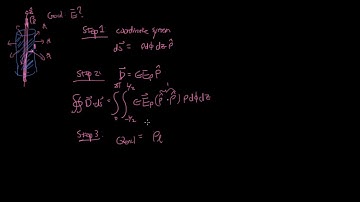 Goal: E⃗?
Step 1 coordinate system
ds⃗ = ρdφdz ρ̂
Step 2: D⃗ = ε E⃗ρ ρ̂
∯ D⃗·ds⃗ = ∫₀^2π ∫_-L/2^L/2 ε E⃗ρ (ρ̂·ρ̂) ρdφdz
Step 3 Qencl = ρℓ